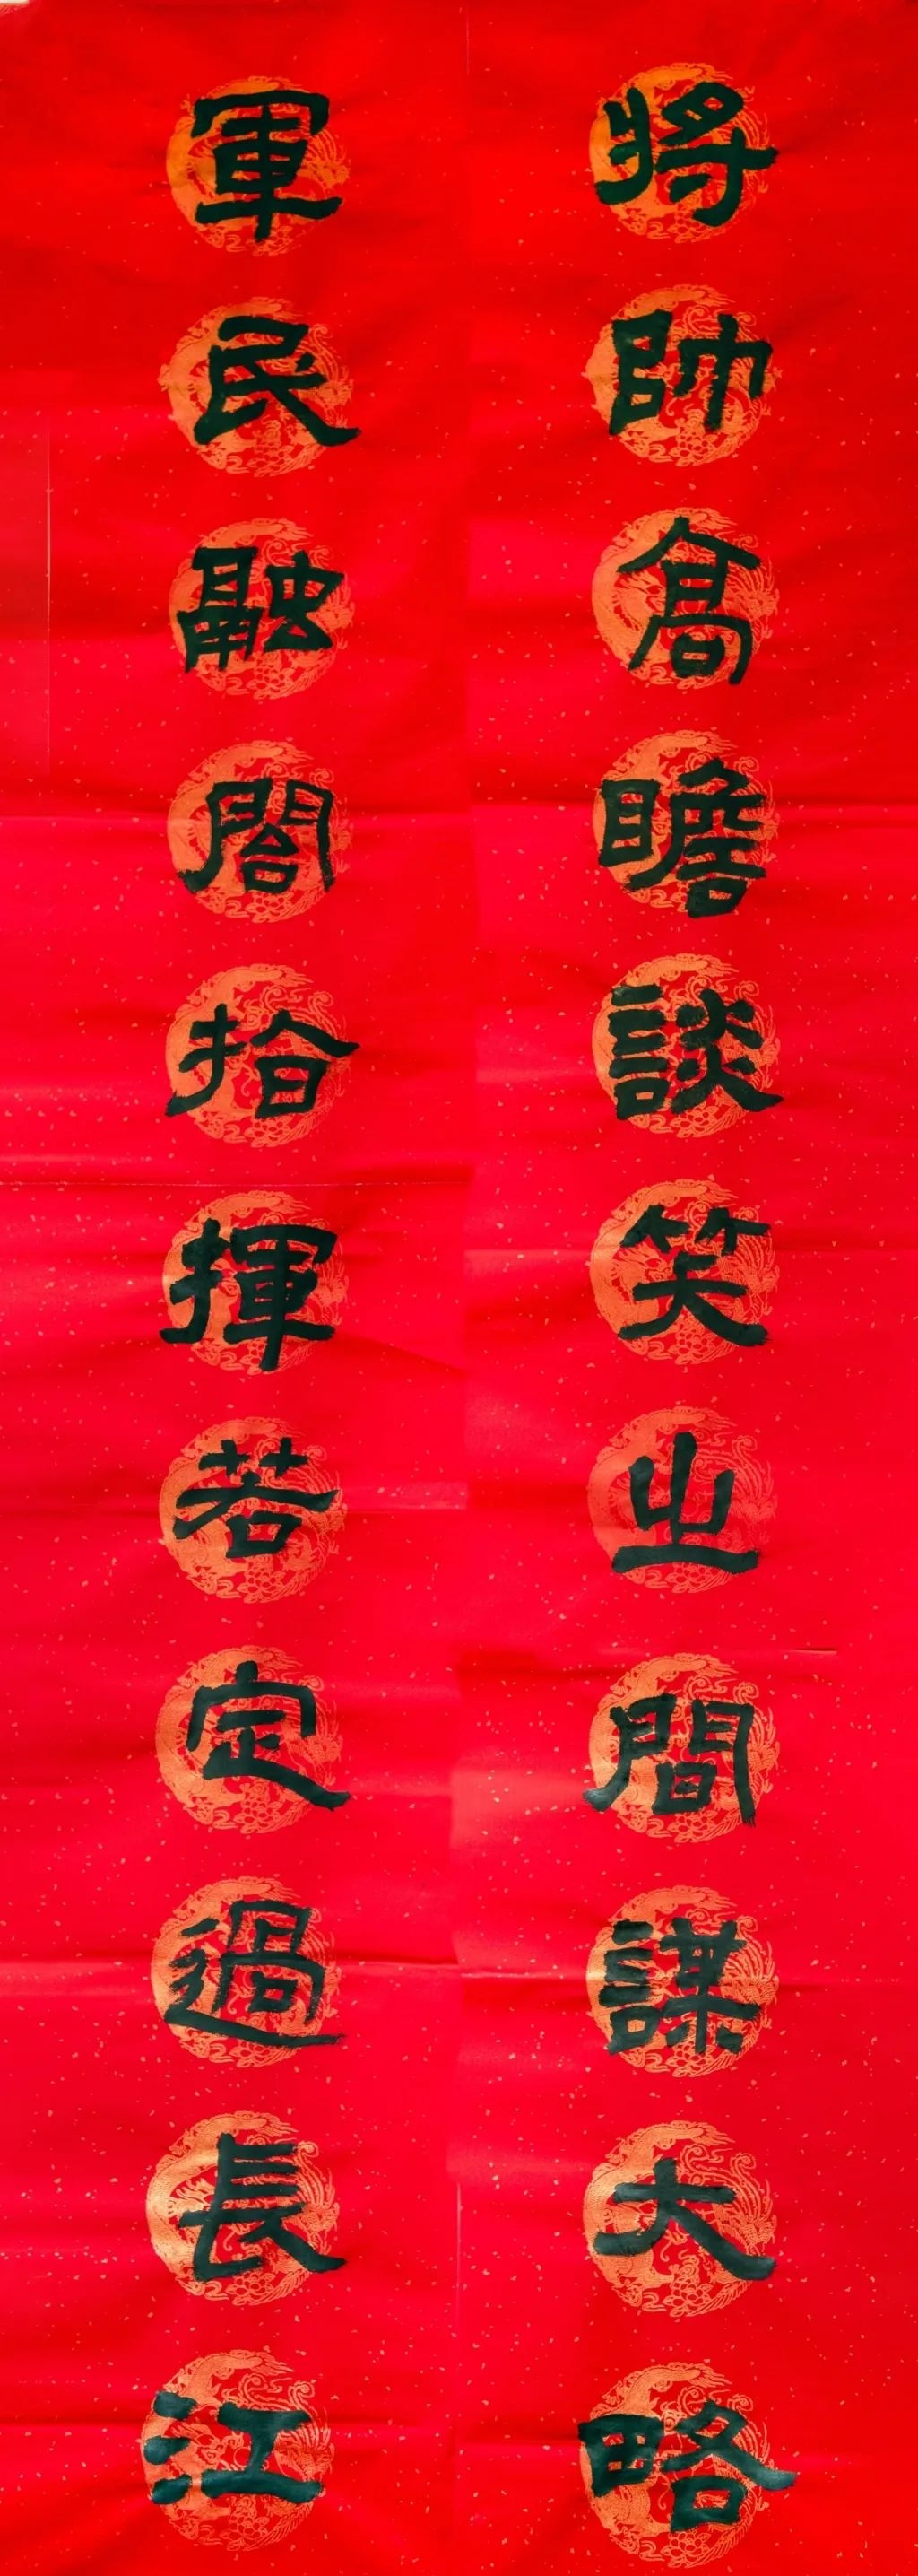 將帥高瞻談笑之間謀大略
軍民融閤拾揮若定過長江